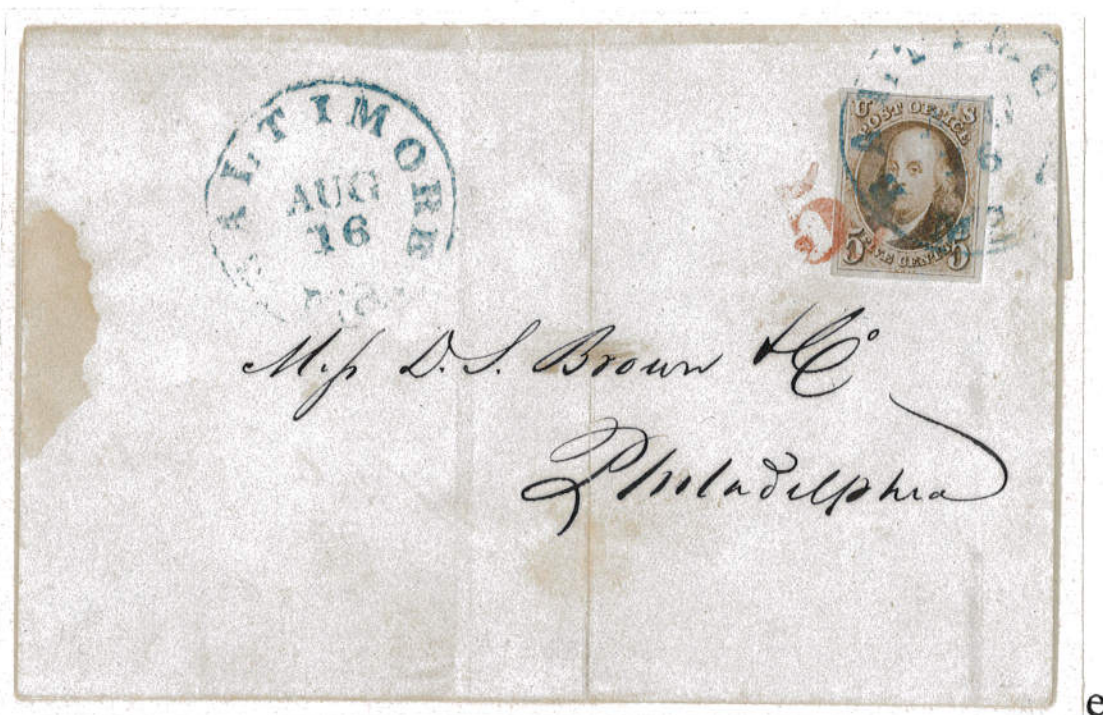 BALTIMORE
AUG
16
Md.
U S
POST OFFICE
5 FIVE CENTS 5
5
Mess D. S. Brown & Co
Philadelphia
e